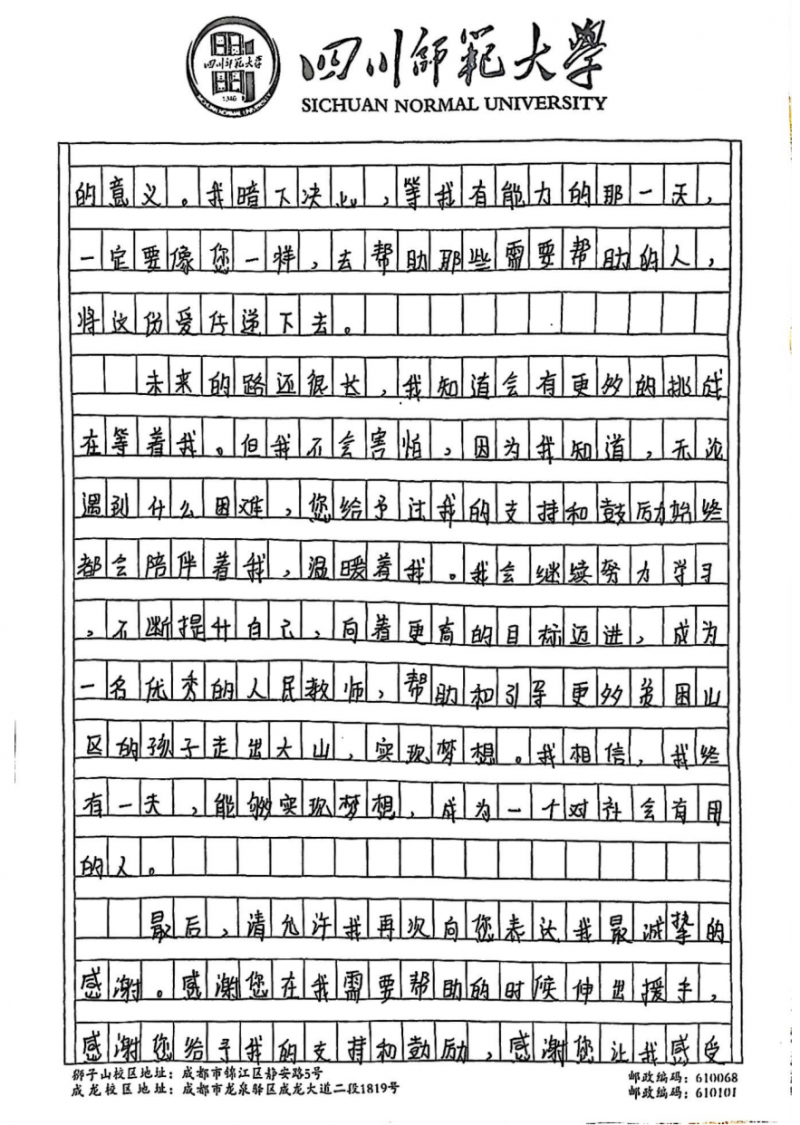 四川师范大学
1946
SICHUAN NORMAL UNIVERSITY
四川師範大學
SICHUAN NORMAL UNIVERSITY
的意义。我暗下决心,等我有能力的那一天,
一定要像您一样,去帮助那些需要帮助的人,
将这份爱传递下去。
未来的路还很长,我知道会有更多的挑战
在等着我。但我不会害怕,因为我知道,无论
遇到什么困难,您给予过我的支持和鼓励始终
都会陪伴着我,温暖着我。我会继续努力学习
,不断提升自己,向着更高的目标迈进,成为
一名优秀的人民教师,帮助和引导更多贫困山
区的孩子走出大山,实现梦想。我相信,我终
有一天,能够实现梦想,成为一个对社会有用
的人。
最后,请允许我再次向您表达我最诚挚的
感谢。感谢您在我需要帮助的时候伸出援手,
感谢您给予我的支持和鼓励,感谢您让我感受
狮子山校区地址:成都市锦江区静安路5号 邮政编码:610068
成龙校区地址:成都市龙泉驿区成龙大道二段1819号 邮政编码:610101